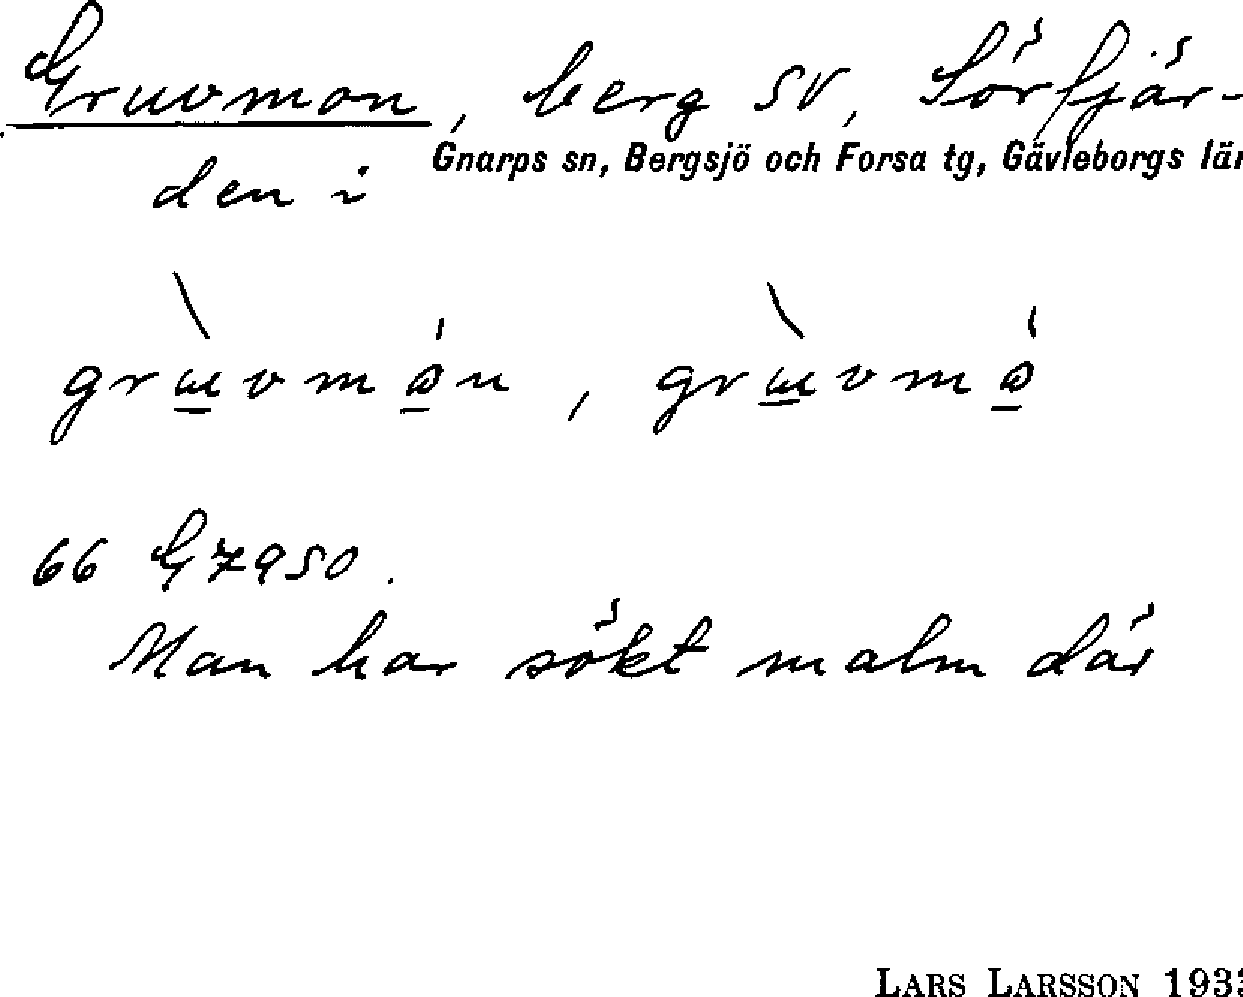 Gruvmon, berg SV, Sörfjär-
Gnarps sn, Bergsjö och Forsa tg, Gävleborgs län
den i
66 G7950.
Man har sökt malm där
LARS LARSSON 1933